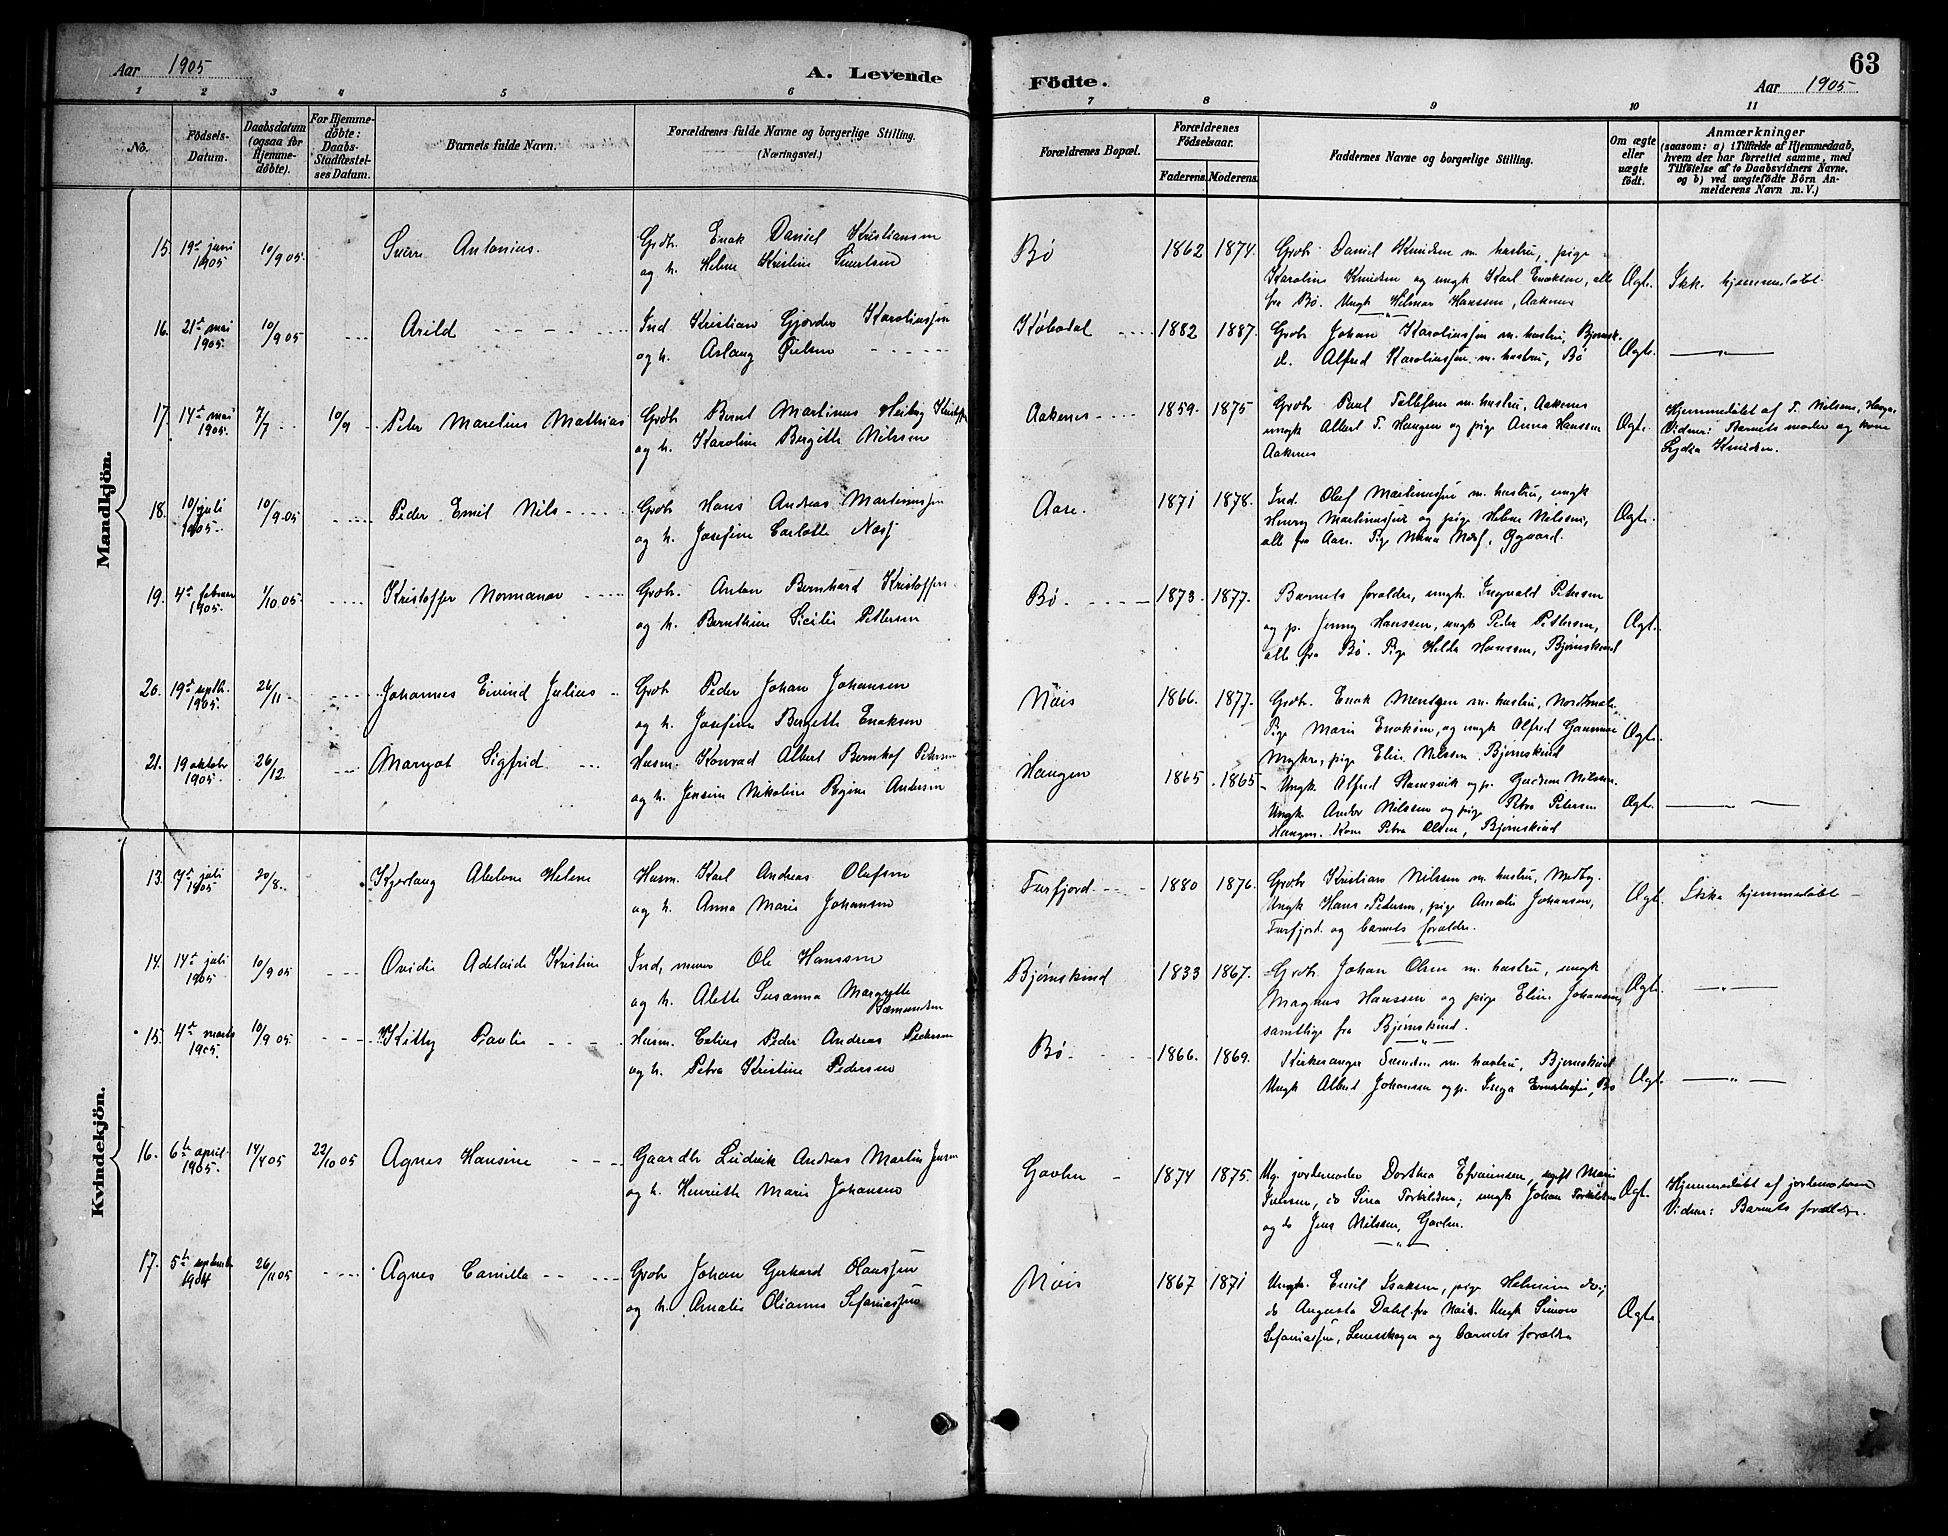 Aar 1905
A. Levende
Födte.
63
Aar 1905
1 2 3 4 5 6 7 8 9 10 11
No.
Födsels-Datum.
Daabsdatum (ogsaa for Hjemmedöbte).
For Hjemmedöbte: Daabs-Stadfæstelses Datum.
Barnets fulde Navn.
Forældrenes fulde Navne og borgerlige Stilling.
(Næringsvei.)
Forældrenes Bopæl.
Forældrenes Födselsaar.
Faderens. Moderens.
Faddernes Navne og borgerlige Stilling.
Om ægte eller uægte födt.
Anmærkninger
(saasom: a) i Tilfælde af Hjemmedaab,
hvem der har forrettet samme, med
Tilföielse af to Daabsvidners Navne,
og b) ved uægtefödte Börn An-
melderens Navn m. V.)
Mandkjön.
15. 19de juni 1905 10/9 05 Sverre Antonius.
Grdb. Enok Daniel Kristiansen
og h. Helene Kristine Sivertsen
Bø 1862 1874.
Grdb. Daniel Knudsen m. hustru, pige
Karoline Knudsen og ungk Karl Enoksen, alle
fra Bø. Ungk Hilmar Hanssen, Aakenes
Ægte. Ikke hjemmedøbt.
16. 21de mai 1905. 10/9 05 Arild
Ind. Kristian Gjorder Karoliussen
og h. Aslaug
Kobodal 1882 1887.
Grdb. Johan Karoliussen m. hustru, Bjørnsk.
d. Alfred Karoliussen m. hustru, Bø
Ægte. — " —
17. 14de mai 1905. 7/7 10/9 Peter Marelius Mathias
Grdb Bernt Martinus Heiberg
og h. Karoline Bergitte Nilssen
Aakenes 1859. 1875
Grdb. Paul Tollefsen m. hustru, Aakenes
ungk Albert T. Haugen og pige Anna Hanssen
Aakenes
Ægte.
Hjemmedøbt af T. Nilssen, Haugen
Vidner: Barnets moder og kone
Lydia Knudsen.
18. 10/juli 1905. 10/9 05 Peder Emil Nils
Grdb Hans Andreas Martinussen
og h. Josefine Carlotte Næss
Aase. 1871 1878.
Ind. Oluf Martinussen m. hustru, ungk
Henry Martinussen og pige Helene Nilssen,
alle fra Aase. Pige Næss,
Ægte.
19. 4de februar 1905. 1/10 05 Kristoffer Normanov
Grdb. Anton Bernhard Kristoffersen
og h. Bernthine Sicilie Pettersen
Bø. 1873. 1877.
Barnets forældre, ungk. Ingvald Petersen
og p. Jenny Hanssen, ungk Peder Pettersen,
alle fra Bø. Pige Hilda Hanssen, Bjørnskind
Ægte.
20. 19de septb. 1905. 26/11 Johannes Eivind Julius
Grdb Peder Johan Johansen
og h. Josefine Bergitte Enoksen
Nøis 1866. 1877.
Grdb. Enok Mentzen m. hustru,
Pige Marie Enoksen, og ungk Alfred
pige Eline Nilssen Bjørnskind
Ægte.
21. 19 oktober 1905. 26/12 Margot Sigfrid
Husm. Konrad Albert Bernhof Petersen
og h. Jensine Nikoline Regine Andersen
Haugen 1865 1865
Ungk. Alfred og p. Nilssen.
Ungk Andor Nilssen og pige Petra Petersen
Haugen. Kone Petra Olsen, Bjørnskind
Ægte. — —
Kvindekjön.
13. 7de juli 1905 20/8. Kjerlaug Abelone Helene
Husm. Karl Andreas Olufsen
og h. Anna Marie Johansen
Forfjord. 1880 1876.
Grdb Kristian Nilssen m. hustru, Medby.
Ungk Hans Pedersen, pige Amalie Johansen,
Forfjord. og barnets forældre.
Ægte. Ikke hjemmedøbt
14. 14de juli 1905 10/9 05 Ovidie Adelaide Kristine
Ind, murer Ole Hanssen
og h. Alette Susanna Margrethe
Sæmundsen
Bjørnskind 1833 1867.
Grdb. Johan Olsen m. hustru, ungk
Magnus Hanssen og pige Eline Johansen,
samtlige fra Bjørnskind.
Ægte. — " —
15. 4de marts 1905. 10/9 05. Kitty Paulie
Husm. Celius Peder Andreas Pedersen
og h. Petra Kristine Pedersen
Bø. 1866. 1869.
Kirkesanger m. hustru, Bjørnskind
Ungk Albert Johansen og p. Inga Bø
Ægte. — " —
16. 6te april 1905. 14/4 05 22/10 05 Agnes Hansine
Gaardb Ludvik Andreas Martin Jensen
og h. Henriette Marie Johansen
Gavlen 1874 1875.
Ug. jordemoder Dorthea Efraimsen, Marie
Iversen, do Sina Torkildsen; ungk Johan Torkildsen
og do Jens Nilssen, Gavlen.
Ægte.
Hjemmedøbt af jordemoderen
Vidner: Barnets forældre.
17. 5te septemb 1904 26/11 05 Agnes Camilla
Grdb Johan Gerhard Olaussen
og h. Amalie Olianna Sefaniassen
Nøis 1867 1871
Ungk. Emil Isaksen, pige Helmine do;
do Augusta Dahl fra Nøis. Ungk Simon
Sefaniassen, og barnets forældre
Ægte.